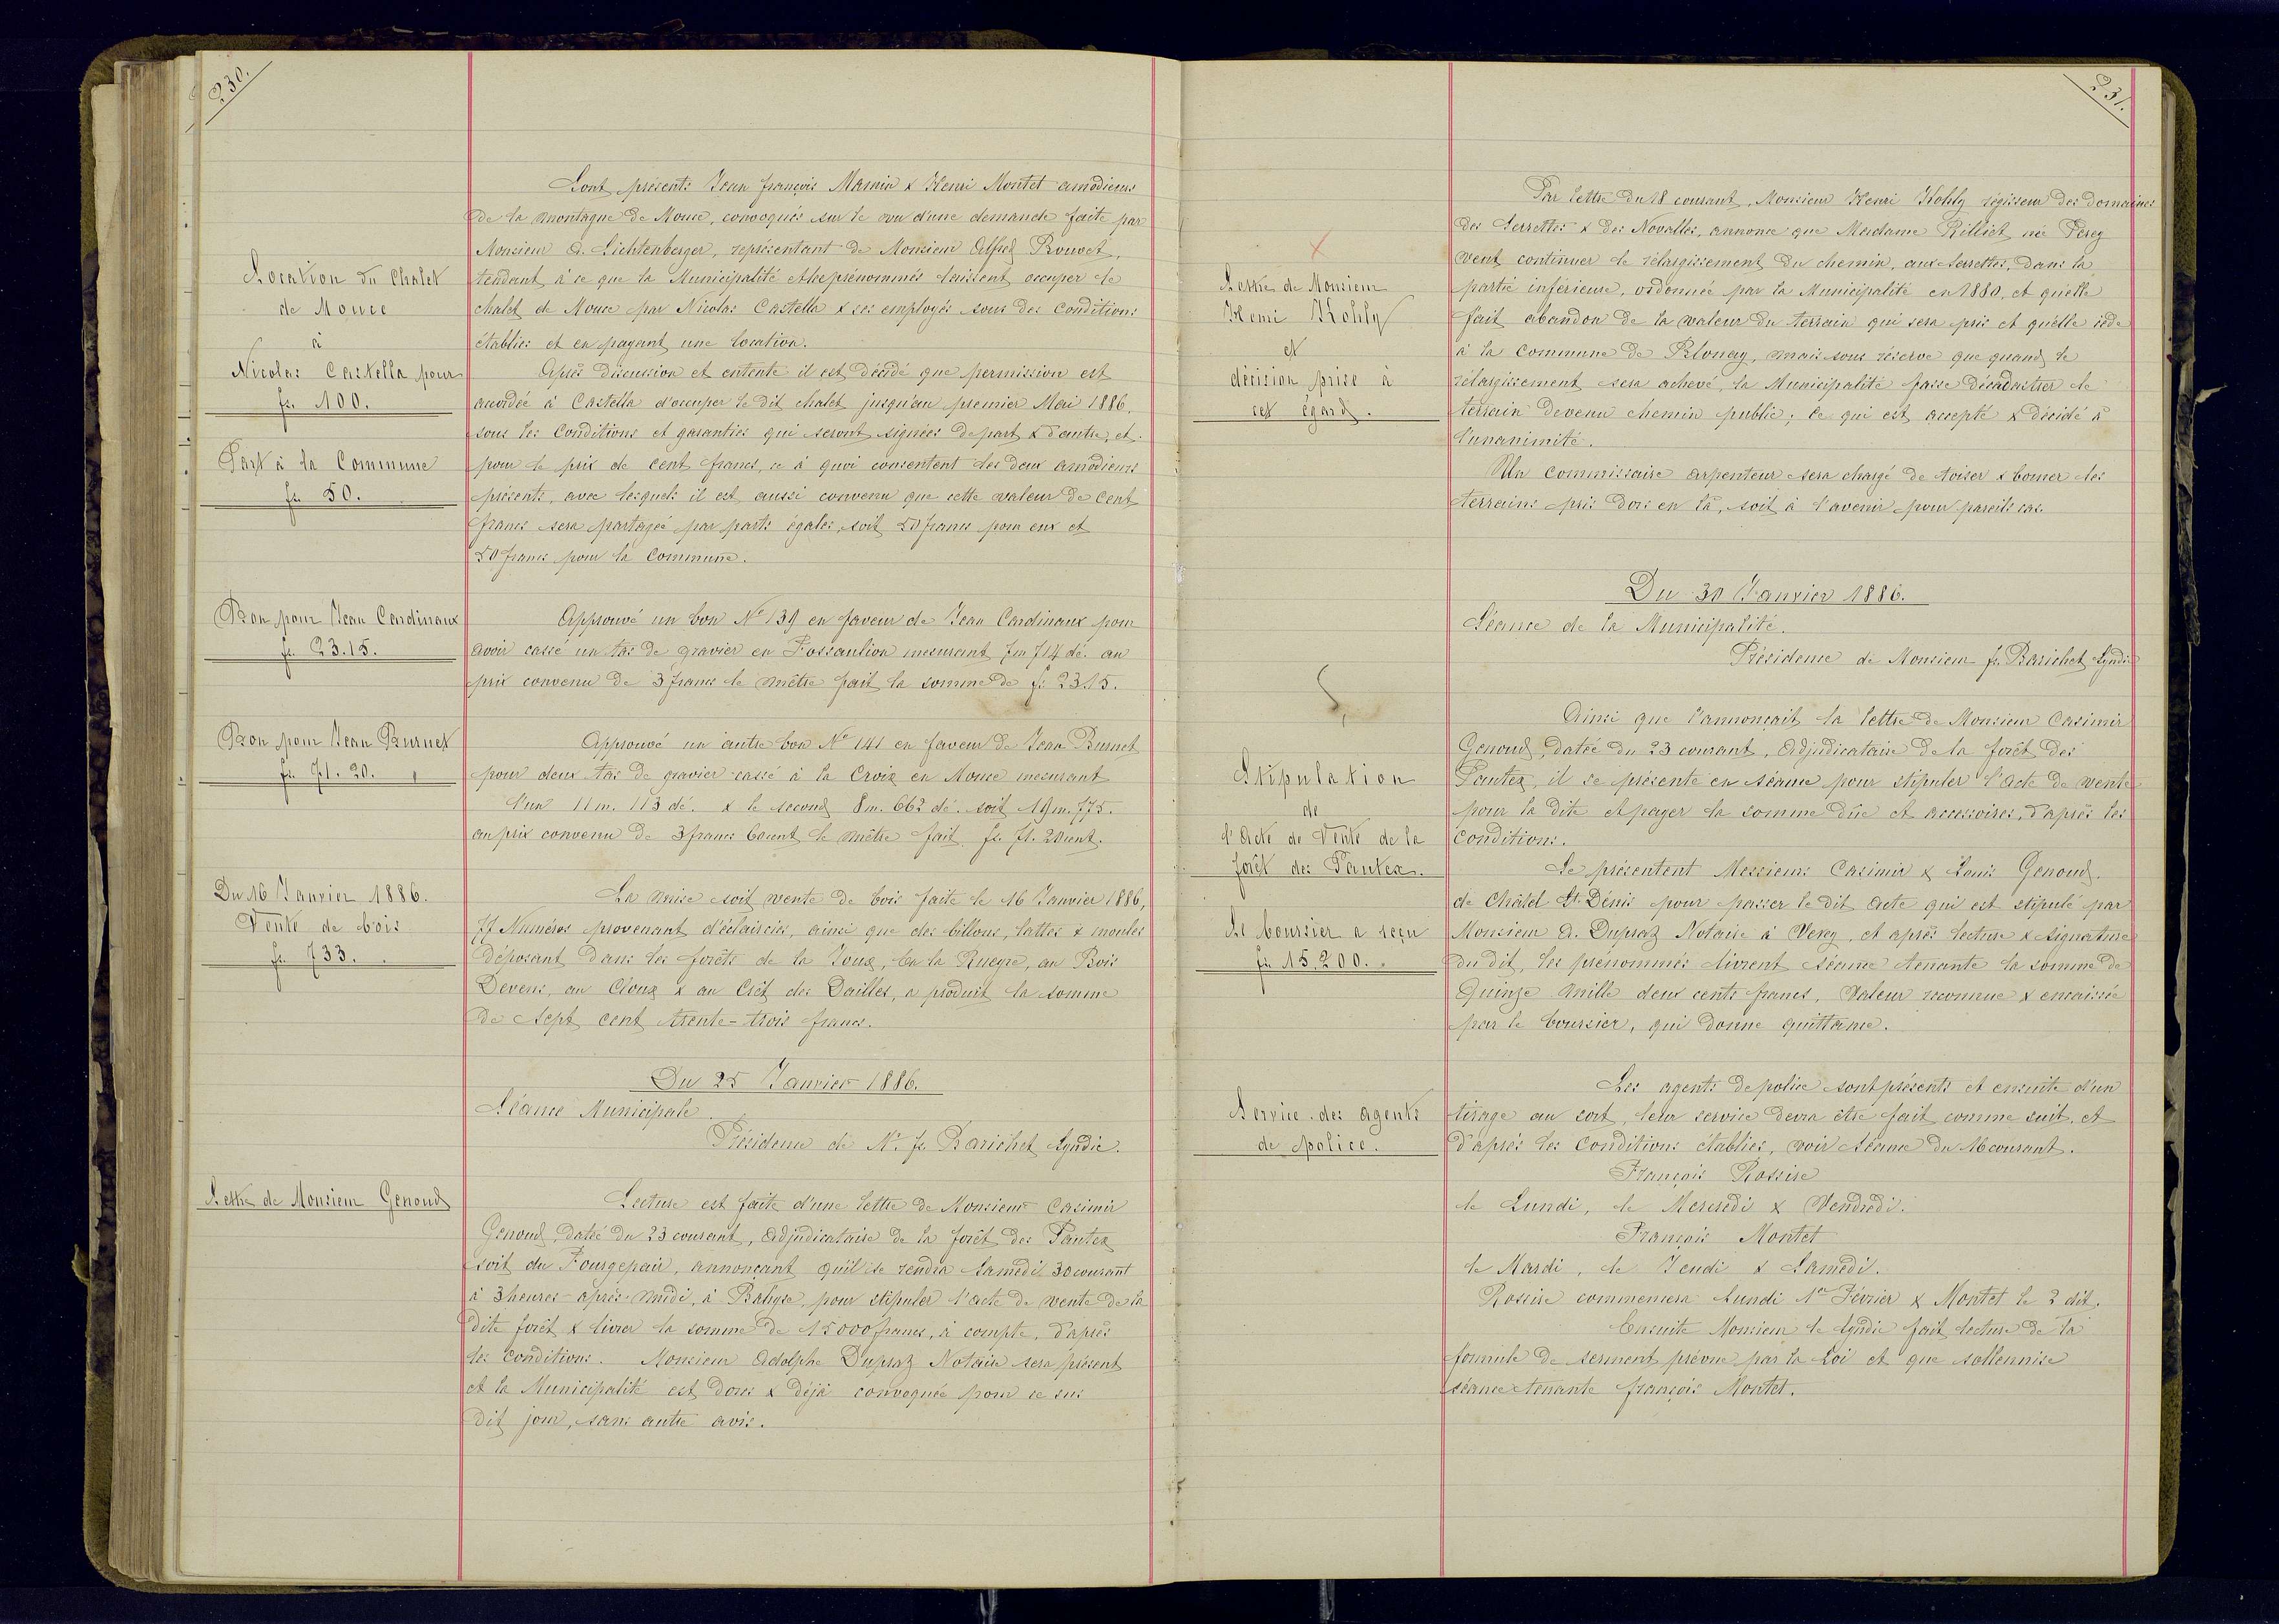 230.
Sont présents Jean François Mamin & Henri Montet amodieurs
de la montagne de Mouce, convoqués sur le vu d'une demande faite par
Monsieur A. Lichtenberger, représentant de Monsieur Alfred Bouvet,
Location du Chalet
de Mouce
à
Nicolas Castella pour
fr. 100.
tendant à ce que la Municipalité et les prénommés laissent occuper le
chalet de Mouce par Nicolas Castella & ses employés sous des conditions
établies et en payant une location.
Après discussion et entente il est décidé que permission est
accordée à Castella d'occuper le dit chalet jusqu'au premier Mai 1886,
sous les conditions et garanties qui seront signées de part & d'autre, et
Part à la Commune
fr. 50.
pour le prix de cent francs, ce à quoi consentent les deux amodieurs
présents, avec lesquels il est aussi convenu que cette valeur de cent
francs sera partagée par parts égales, soit 50 francs pour eux et
50 francs pour la Commune.
Bon pour Jean Cardinaux
fr. 23.15.
Approuvé un bon No 139 en faveur de Jean Cardinaux pour
avoir cassé un tas de gravier en Fossaulion mesurant 7m 714 dé. au
prix convenu de 3 francs le mètre fait la somme de fr. 23.15.
Bon pour Jean Burnet
fr. 71. 20.
Approuvé un autre bon No 141 en faveur de Jean Burnet
pour deux tas de gravier cassé à la Croix en Mouce mesurant
l'un 11 m. 113 dé. & le second 8 m. 662 dé. soit 19 m. 775.
au prix convenu de 3 francs 60 cent le mètre fait fr. 71. 20 cent.
Du 16 Janvier 1886.
Vente de bois
fr. 733.
La mise soit vente de bois faite le 16 Janvier 1886,
77 Numéros provenant d'éclaircies, ainsi que des billons, lattes & moules
déposant dans les forêts de la Joux, En la Rueyre, au Bois
Devens, au Cioux & au Crêt des Dailles, a produit la somme
de sept cent trente-trois francs.
Du 25 Janvier 1886.
Séance Municipale.
Présidence de Mr. fs. Barichet Syndic.
Lettre de Monsieur Genoud
Lecture est faite d'une lettre de Monsieur Casimir
Genoud, datée du 23 courant, adjudicataire de la forêt des Pautex
soit du Foursgepair, annonçant qu'il se rendra Samedi 30 courant
à 3 heures après-midi, à Bahyse, pour stipuler l'acte de vente de la
dite forêt & livrer la somme de 15000 francs, à compte, d'après
les conditions. Monsieur Adolphe Dupraz Notaire sera présent
et la Municipalité est dores & déjà convoquée pour ce sus
dit jour, sans autre avis.
231.
Par lettre du 18 courant, Monsieur Henri Kohly régisseur des domaines
des Serrettes & des Novalles, annonce que Madame Rilliet née Perey
Lettre de Monsieur
Henri Kohly
et
décision prise à
cet égard.
veut continuer le rélargissement du chemin, aux Serrettes, dans la
partie inférieure, ordonnée par la Municipalité en 1880, et qu'elle
fait abandon de la valeur du terrain qui sera pris et qu'elle cède
à la commune de Blonay, mais sous réserve que quand le
rélargissement sera achevé, la Municipalité fasse décadastrer le
terrain devenu chemin public; ce qui est accepté & décidé à
l'unanimité.
Un Commissaire arpenteur sera chargé de toiser & borner les
terrains pris dors en là, soit à l'avenir pour pareils cas.
Du 30 Janvier 1886.
Séance de la Municipalité.
Présidence de Monsieur fs. Barichet Syndic
Ainsi que l'annonçait la lettre de Monsieur Casimir
Genoud, datée du 23 courant, adjudicataire de la forêt des
Stipulation
de
l'Acte de Vente de la
forêt des Pautex.
Pautex, il se présente en séance pour stipuler l'acte de vente
pour la dite et payer la somme dûe et accessoires, d'après les
conditions.
Se présentent Messieurs Casimir & Louis Genoud.
de Châtel St. Dénis pour passer le dit acte qui est stipulé par
Le boursier a reçu
fr. 15,200.
Monsieur A. Dupraz Notaire à Vevey, et après lecture & signature
du dit, les prénommés livrent séance tenante la somme de
Quinze mille deux cents francs, Valeur reconnue & encaissée
par le boursier, qui donne quittance.
Service des agents
de police.
Les agents de police sont présents et ensuite d'un
tirage au sort, leur service devra être fait comme suit, et
d'après les conditions établies, voir séance du 16 courant.
François Rossire
le Lundi, le Mercredi & Vendredi.
François Montet
le Mardi, le Jeudi & Samedi.
Rossire commencera Lundi 1er Février & Montet le 2 dit.
Ensuite Monsieur le Syndic fait lecture de la
formule de serment prévue par la Loi et que sollennise
séance tenante François Montet.